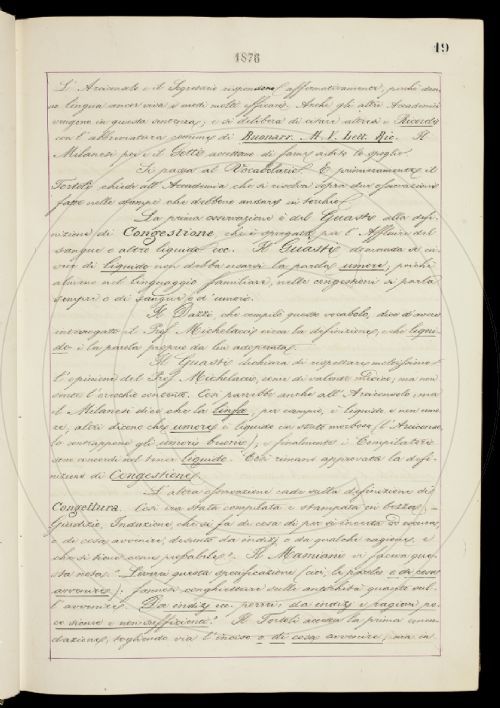 19
1876
L'Arciconsolo e il Segretario rispondono affermativamente, perchè dan-
no lingua ancor viva e modi molto efficaci. Anche gli altri Accademici
vengono in questa sentenza; e si delibera di citare altresì i Ricordi
con l'abbreviatura comune di Buonarr. M. V. Lett. Ric. Il
Milanesi poi e il Gotti accettano di farne subito lo spoglio.
Si passa al Vocabolario. E primieramente il
Tortoli chiede all'Accademia che si risolva sopra due osservazioni
fatte nelle stampe che debbono andare in torchio.
La prima osservazione è del Guasti alla defi-
nizione di Congestione, che è spiegata per l'Afflusso del
sangue o altro liquido ec. Il Guasti domanda se in-
vece di liquido non debba usarsi la parola umore; poichè
almeno nel linguaggio familiare, nelle congestioni si parla
sempre o di sangue o d'umore.
Il Dazzi, che compilò questo vocabolo, dice di avere
interrogato il Prof. Michelacci circa la definizione, e che liqui-
do è la parola propria da lui adoperata.
Il Guasti dichiara di rispettare moltissimo
l'opinione del Prof. Michelacci, come di valente Medico, ma non
come l'orecchio Così parrebbe anche all'Arciconsolo; ma
il Milanesi dice che la linfa, per esempio, è liquido e non umo-
re, altri dicono che umore è liquido in stato morboso (l'Arciconso-
lo contrappone gli umori buoni), e finalmente i Compilatori
sono concordi nel tener liquido. Così rimane approvata la defi-
nizione di Congestione.
L'altra osservazione cade sulla definizione di
Congettura. Così era stata compilata e stampata in bozza: –
Giudizio, Induzione che si fa di cosa di per sè incerta od oscura,
o di cosa avvenire, desunto da indizj o da qualche ragione, e
che si tiene come probabile". Il Mamiani vi faceva que-
sta nota: "Leverei questa specificazione (cioè, le parole o di cosa
avvenire): fannosi conghietture sulle antichità quanto sul-
l'avvenire. Da indizj ec. porrei: da indizj e ragioni po-
co sicure e non sufficienti." Il Tortoli accetta la prima emen-
dazione, togliendo via l'inciso o di cosa avvenire; ma in